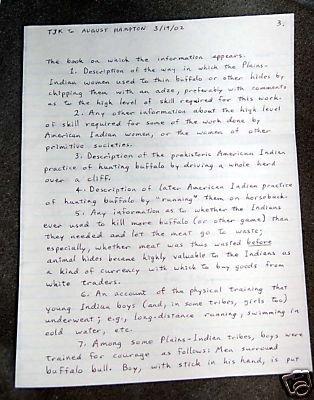 TJK to AUGUST HAMPTON 3/19/02 3.
The book on which the information appears.
1. Description of the way in which the Plains-
Indian women used to thin buffalo or other hides by
chipping them with an adze, preferably with comments
as to the high level of skill required for this work.
2. Any other information about the high level
of skill required for some of the work done by
American Indian women, or the women of other
primitive societies.
3. Description of the prehistoric American Indian
practice of hunting buffalo by driving a whole herd
over a cliff.
4. Description of later American Indian practice
of hunting buffalo by "running" them on horseback.
5. Any information as to whether the Indians
ever used to kill more buffalo (or other game) than
they needed and let the meat go to waste;
especially, whether meat was thus wasted before
animal hides became highly valuable to the Indians as
a kind of currency with which to buy goods from
white traders.
6. An account of the physical training that
young Indian boys (and, in some tribes, girls too)
underwent; e.g., long-distance running, swimming in
cold water, etc.
7. Among some Plains-Indian tribes, boys were
trained for courage as follows: Men surround
buffalo bull. Boy, with stick in his hand, is put